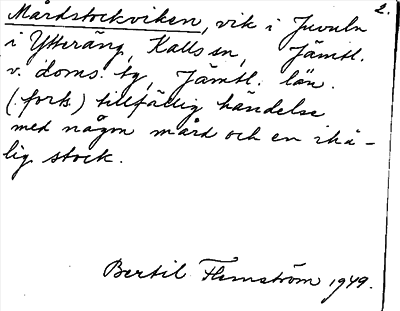 2.
Mårdstockviken, vik i Juvuln
i Ytteräng, Kalls sn, Jämtl.
v. doms. tg, Jämtl. län.
(forts) tillfällig händelse
med någon mård och en ihå-
lig stock.
Bertil Flemström 1949.